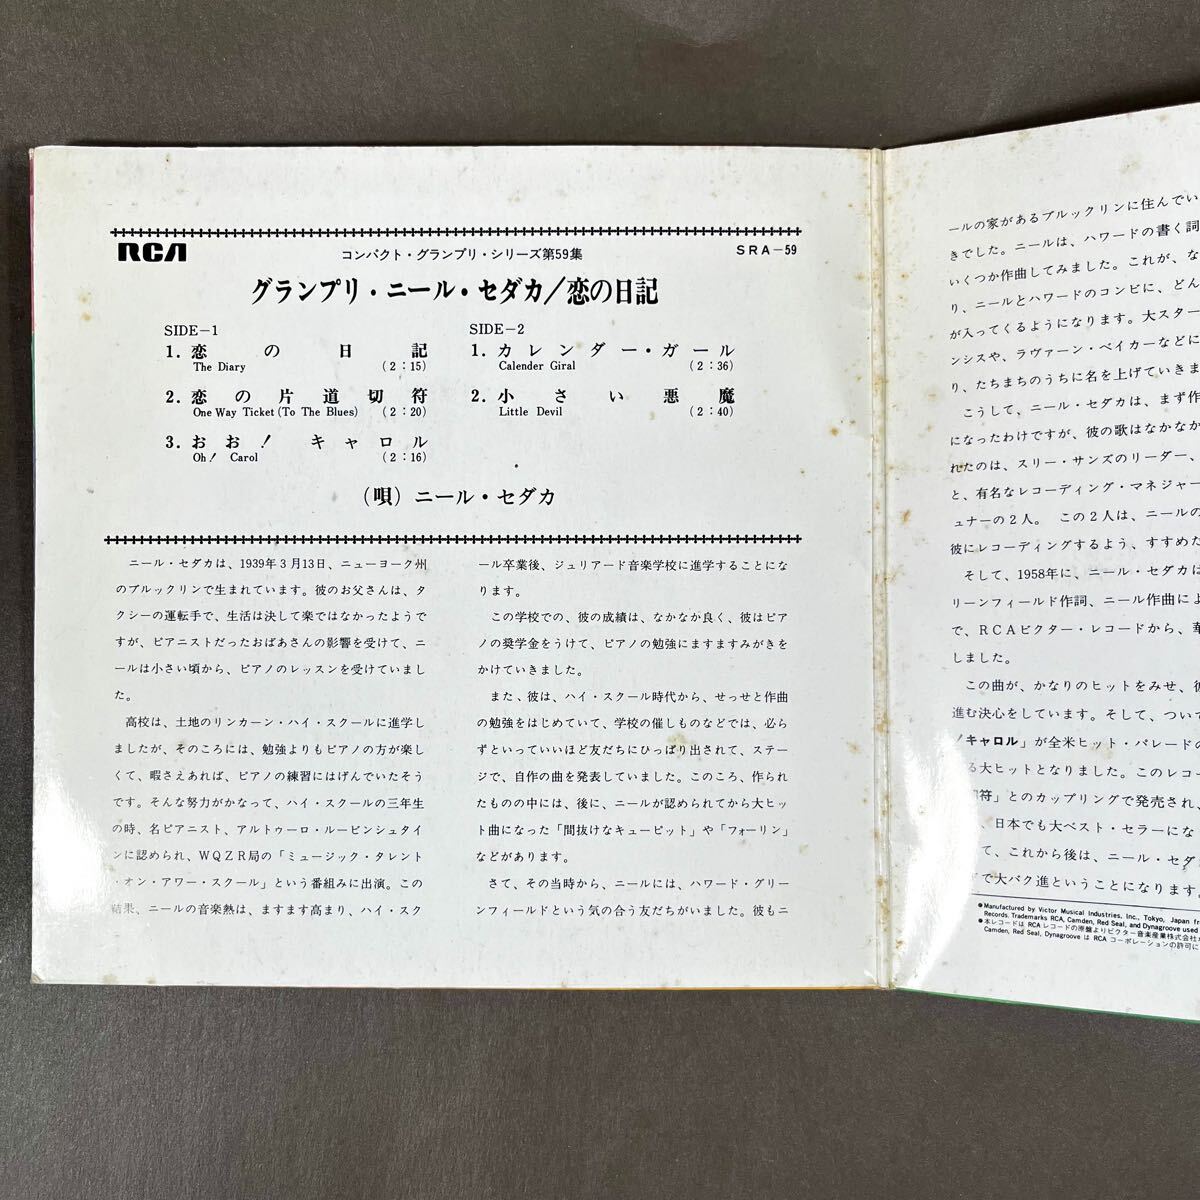 RCA
コンパクト・グランプリ・シリーズ第59集
SRA-59
グランプリ・ニール・セダカ/恋の日記
SIDE-1
1. 恋の日記
The Diary (2:15)
2. 恋の片道切符
One Way Ticket (To The Blues) (2:20)
3. おお! キャロル
Oh! Carol (2:16)
SIDE-2
1. カレンダー・ガール
Calender Giral (2:36)
2. 小さい悪魔
Little Devil (2:40)
(唄) ニール・セダカ
ニール・セダカは、1939年3月13日、ニューヨーク州
のブルックリンで生まれています。彼のお父さんは、タ
クシーの運転手で、生活は決して楽ではなかったようで
すが、ピアニストだったおばあさんの影響を受けて、ニ
ールは小さい頃から、ピアノのレッスンを受けていまし
た。
高校は、土地のリンカーン・ハイ・スクールに進学し
ましたが、そのころには、勉強よりもピアノの方が楽し
くて、暇さえあれば、ピアノの練習にはげんでいたそう
です。そんな努力がかなって、ハイ・スクールの三年生
の時、名ピアニスト、アルトゥーロ・ルービンシュタイ
ンに認められ、WQZR局の「ミュージック・タレント
・オン・アワー・スクール」という番組みに出演。この
結果、ニールの音楽熱は、ますます高まり、ハイ・スク
ール卒業後、ジュリアード音楽学校に進学することにな
ります。
この学校での、彼の成績は、なかなか良く、彼はピア
ノの奨学金をうけて、ピアノの勉強にますますみがきを
かけていきました。
また、彼は、ハイ・スクール時代から、せっせと作曲
の勉強をはじめていて、学校の催しものなどでは、必ら
ずといっていいほど友だちにひっぱり出されて、ステー
ジで、自作の曲を発表していました。このころ、作られ
たものの中には、後に、ニールが認められてから大ヒッ
ト曲になった「間抜けなキューピット」や「フォーリン」
などがあります。
さて、その当時から、ニールには、ハワード・グリー
ンフィールドという気の合う友だちがいました。彼もニ
ールの家があるブルックリンに住んでい
きでした。ニールは、ハワードの書く詞
いくつか作曲してみました。これが、な
り、ニールとハワードのコンビに、どん
が入ってくるようになります。大スター
ンシスや、ラヴァーン・ベイカーなどに
り、たちまちのうちに名を上げていきま
こうして、ニール・セダカは、まず作
になったわけですが、彼の歌はなかなか
れたのは、スリー・サンズのリーダー、
と、有名なレコーディング・マネジャー
ュナーの2人。この2人は、ニールの
彼にレコーディングするよう、すすめた
そして、1958年に、ニール・セダカは
リーンフィールド作詞、ニール作曲によ
で、RCAビクター・レコードから、華
しました。
この曲が、かなりのヒットをみせ、彼
進む決心をしています。そして、ついて
/キャロル」が全米ヒット・パレードの
る大ヒットとなりました。このレコー
符」とのカップリングで発売され、
、日本でも大ベスト・セラーにな
て、これから後は、ニール・セダ
で大バク進ということになります。
●Manufactured by Victor Musical Industries, Inc., Tokyo, Japan fr
Records. Trademarks RCA, Camden, Red Seal, and Dynagroove used
●本レコードは RCA レコードの原盤よりビクター音楽産業株式会社
Camden, Red Seal, Dynagroove は RCA コーポレーションの許可に